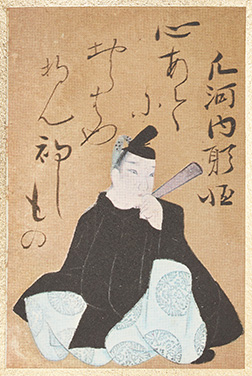 凡河内躬恒
心あてに
おらはや
おらん初しもの